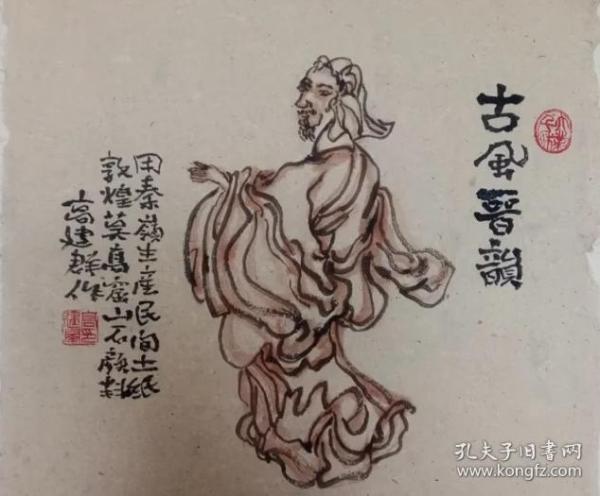 古風晉韻
用秦嶺生産民间土
敦煌莫高窟山石顔料
高建
孔夫子旧书网
www.kongfz.com